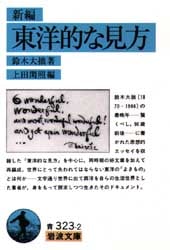 新編
東洋的な見方
鈴木大拙著
上田閑照編
O wonderful,
wonderful,
and most wonderful
wonderful! and
yet again wonderful
鈴木大拙(18
70-1966)の
最晩年──驚
くべし,90歳
前後──に書
かれた思想的
エッセイを収
録した『東洋的な見方』を中心に,同時期の好文章を加えて
再編成.世界にとって失われてはならない東洋の「よきもの」
とは何か──文字通り世界に出て西洋を自らの生活世界とし
た著者が,身をもって
つつ生きたそのドキュメント.
青 323-2
岩波文庫